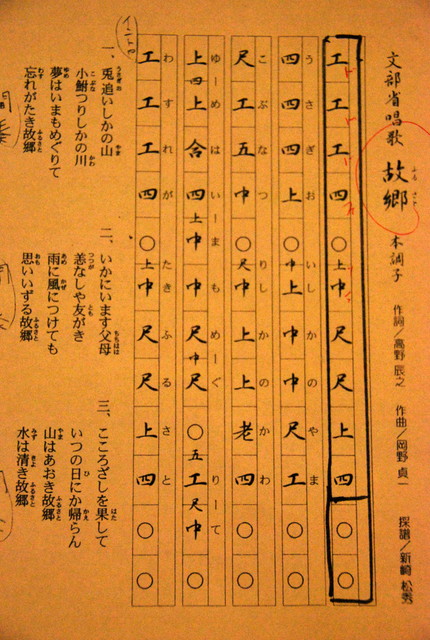 文部省唱歌 故郷 本調子 作詞/高野辰之 作曲/岡野貞一 採譜/新崎松秀
ふるさと
イントロ
工工工四○上中尺尺上四○○
うさぎおいしかのやま
四四四上○中上中中尺工○○
こぶなつりしかのかわ
尺工五中○尺中上上老四○○
ゆーめはいーまもめーぐりーて
上四上合四上中中中尺中尺○五工尺中○○
わすれがたきふるさと
工工工四○上中尺尺上四○○
一、兎追いしかの山
小鮒つりしかの川
夢はいまもめぐりて
忘れがたき故郷
二、いかにいます父母
恙なしや友がき
雨に風につけても
思いいずる故郷
三、こころざしを果して
いつの日にか帰らん
山はあおき故郷
水は清き故郷